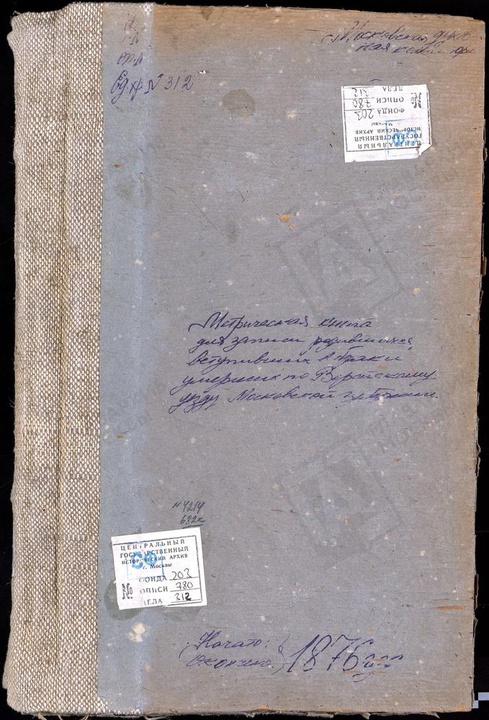 Московская духов
ная конси
Ед.хр № 312
ЦЕНТРАЛЬНЫЙ
ГОСУДАРСТВЕННЫЙ
ИСТОРИЧЕСКИЙ АРХИВ
г. Москвы
ФОНДА 203
№ ОПИСИ 780
ДЕЛА 312
Метрическая книга
для записи родившихся
вступивших в браки
умерших по Верейскому
уезду Московской губернии
N 4214
632л
ЦЕНТРАЛЬНЫЙ
ГОСУДАРСТВЕННЫЙ
ИСТОРИЧЕСКИЙ АРХИВ
г. Москвы
ФОНДА 203
№ ОПИСИ 780
ДЕЛА 312
Начато:
Окончено 1876 года